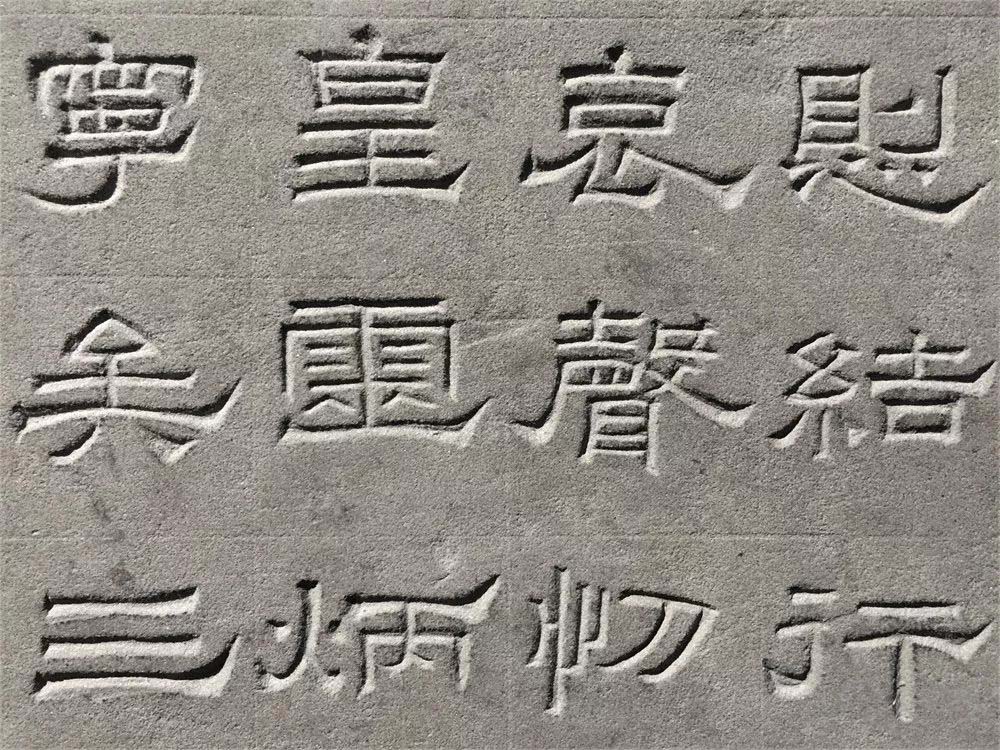 則結行
哀聲忉
皇炳
寧矣三